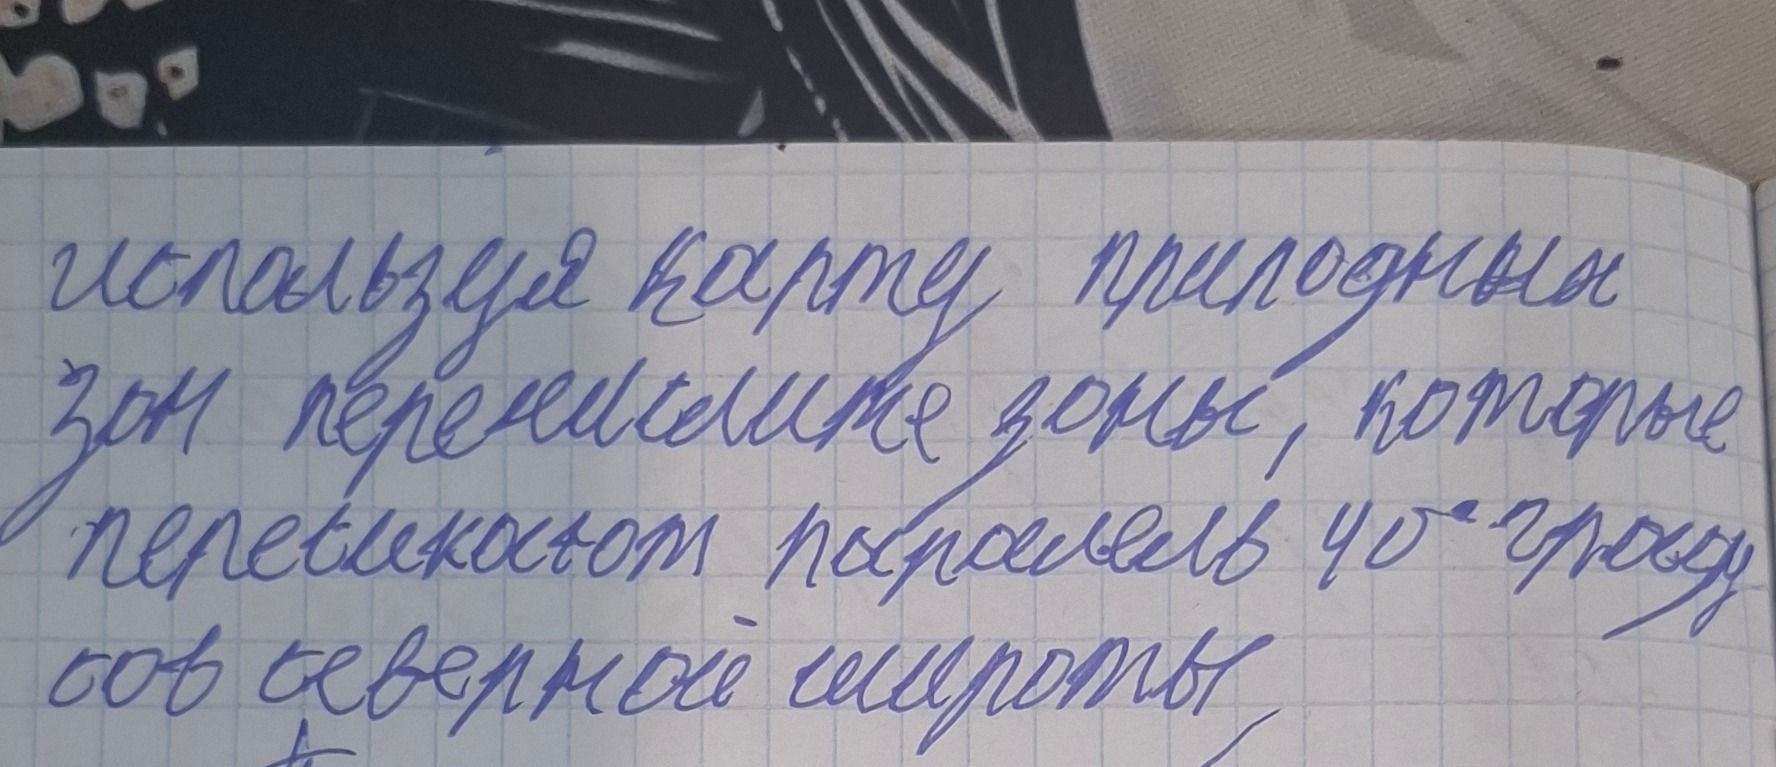 используя карту природных
зон перечислите зоны, которые
пересикают паралель 40° граду
сов северной широты,